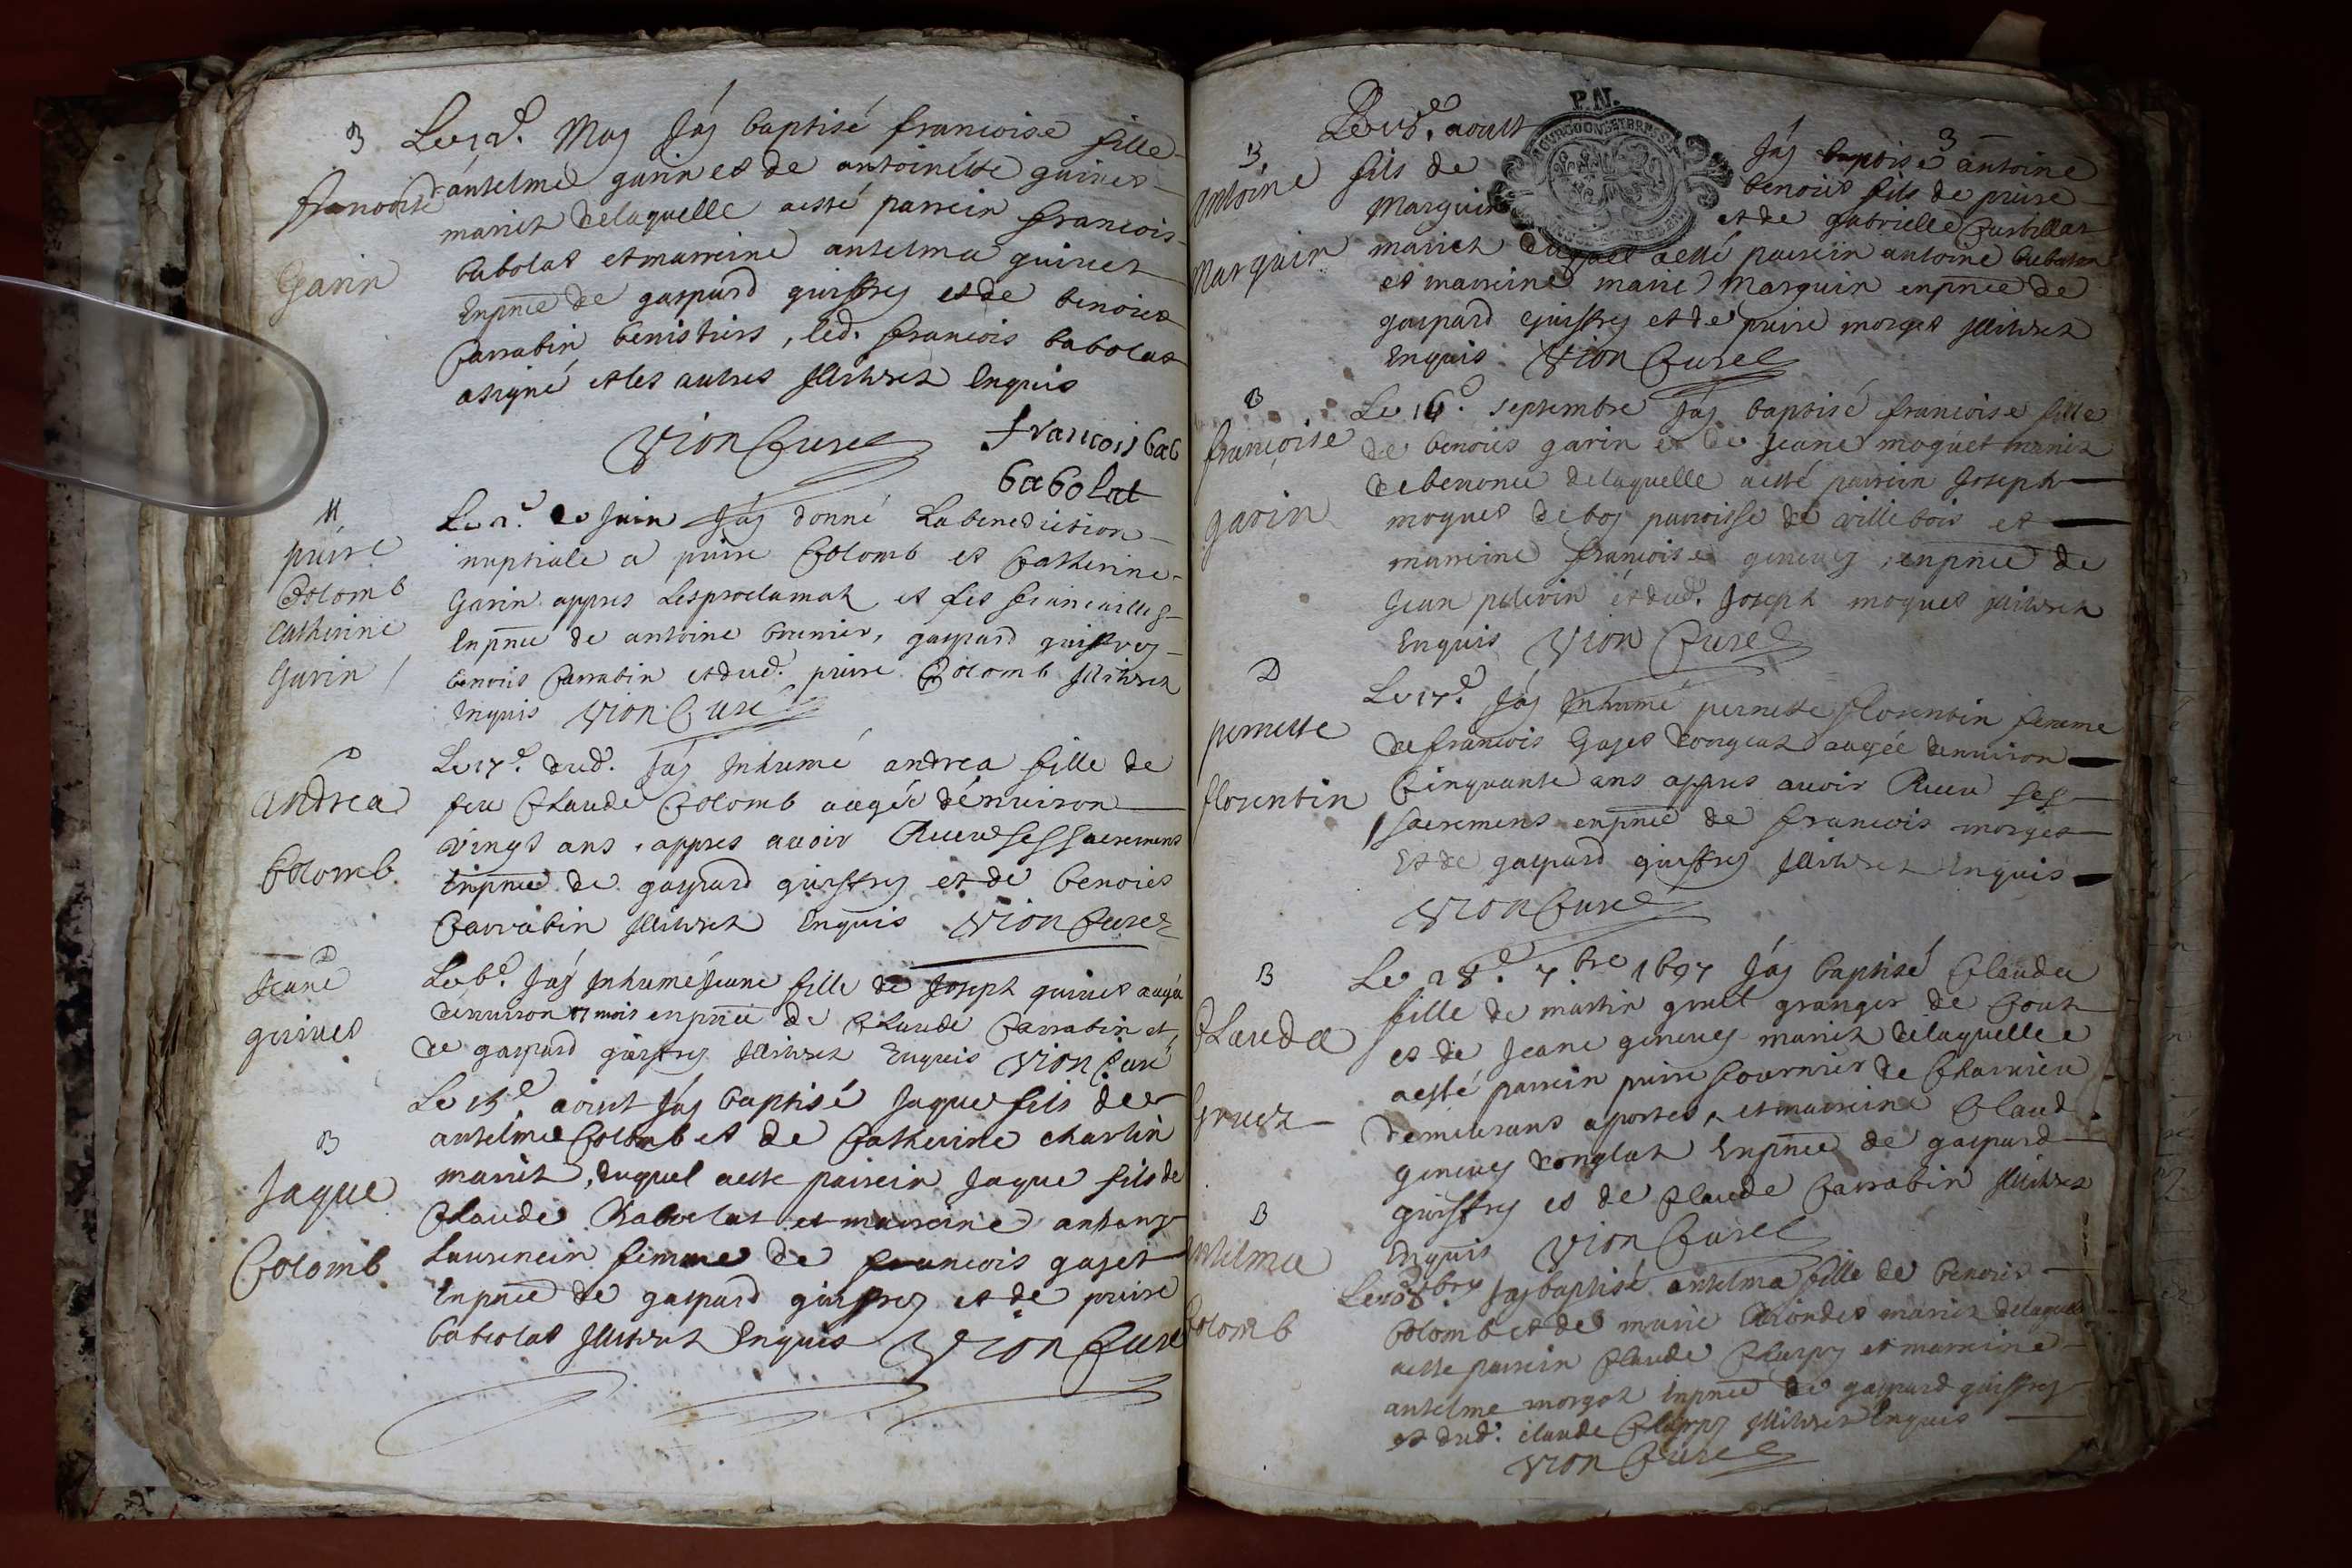 B
francoise
Garin
Le 12.e May Jay baptisé francoise fille
d'antelme garin et de antoinette guinet
mariez delaquelle a esté parrein francois
babolat et marreine antelma guinet
Enpñce de gaspard guiffrey et de benoict
Carrabin benistiers, led. francois babolat
a signé et les autres Illitirez Enquis
Vion Curé
francois bab
babolat
M
piere
Colomb
Catherine
Garin
Le 2.e Juin Jay donné La benediction
nuptiale a piere Colomb et Catherine
Garin appres Lesproclamaõ et les fiancailles
Enpñce de antoine brunier, gaspard guiffrey
benoict Carrabin et dud. piere Colomb Illitirez
Enquis Vion Curé
D
andrea
Colomb
Le 17.e dud. Jay Inhumé andrea fille de
feu Claude Colomb aagée dénuiron
vingt ans, appres auoir Receu ses sacremens
Enpñce de gaspard guiffrey et de benoict
Carrabin Illitirez Enquis Vion Curé
D
Jeane
guinet
Le 6.e Jay Inhumé Jeane fille de Joseph guinet aagée
dénuiron 17 mois enpñce de Claude Carrabin et
de gaspard guiffrey Illitirez Enquis Vion Curé
B
Jaque
Colomb
Le 15.e aoust Jay baptisé Jaque fils de
antelme Colomb et de Catherine charlin
mariez, duquel a esté parrein Jaque fils de
Claude babolat et marreine
Laurencin femme de francois gaget
Enpñce de gaspard guiffrey et de piere
babolat Illitirez Enquis Vion Curé
P.N.
3
B
antoine
Marguin
Le 15.e aoust Jay baptisé antoine
fils de benoict fils de piere
Marguin et de gabrielle Curtillat
mariez duquel a esté parrein antoine
et marreine marie Marguin enpñce de
gaspard guiffrey et de piere morget Illitirez
Enquis Vion Curé
B
francoise
garin
Le 16.e septembre Jay baptisé francoise fille
de benoict garin et de Jeane moquet mariez
de benonce delaquelle a esté parrein Joseph
moquet de boy parroisse de villebois et
marreine francoise geneuey, enpñce de
Jean peleuin et dud. Joseph moquet Illitirez
Enquis Vion Curé
D
pernette
florentin
Le 17.e Jay Inhumé pernette florentin femme
de francois gaget aagée denuiron
Cinquante ans appres auoir Receu ses
sacremens enpñce de francois morget
et de gaspard guiffrey Illitirez Enquis
Vion Curé
B
Clauda
Gruet
Le 28.e 7bre 1697 Jay baptisé Clauda
fille de martin gruel granger de Cout
et de Jeane geneuey mariez delaquelle
a esté parrein piere fournier de Charvieu
demeurant a portes, et marreine Claud.
geneuey Enpñce de gaspard
guiffrey et de Claude Carrabin Illitirez
Enquis Vion Curé
B
antelma
Colomb
Jay baptisé antelma fille de benoict
Colomb et de marie mariez delaquelle
a esté parrein Claude et marreine
antelme morgot Enpñce de gaspard guiffrey
et dud. claude Illitirez Enquis
Vion Curé